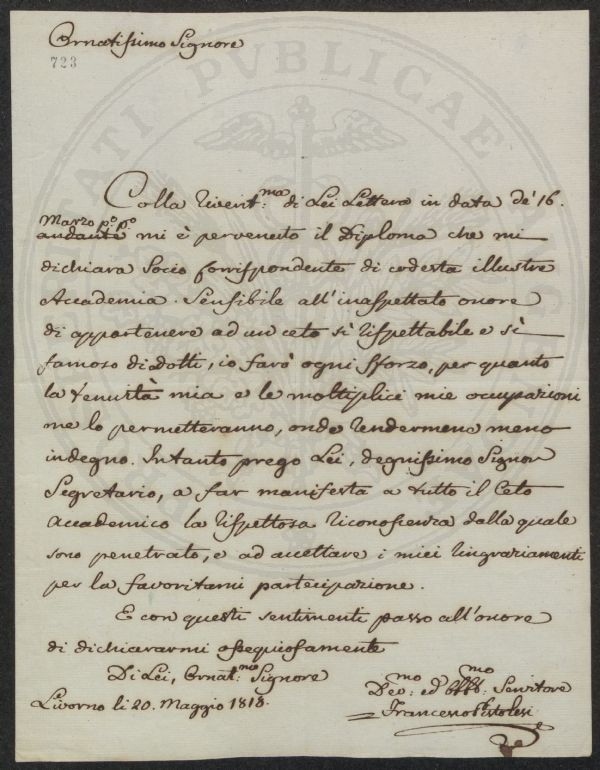 Ornatissimo Signore
723
Colla rivent:ma di Lei Lettera in data de' 16.
Marzo po. po.
andante mi è pervenuto il Diploma che mi
dichiara Socio Corrispondente di codesta illustre
Accademia. Sensibile all'inaspettato onore
di appartenere ad un ceto sì rispettabile e sì
famoso di dotti, io farò ogni sforzo, per quanto
la tenuità mia e le moltiplici mie occupazioni
me lo permetteranno, onde rendermene meno
indegno. Intanto prego Lei, degnissimo Signor
Segretario, a far manifesta a tutto il Ceto
Accademico la rispettosa riconoscenza dalla quale
sono penetrato, e ad accettare i miei ringraziamenti
per la favoritami partecipazione.
E con questi sentimenti passo all'onore
di dichiararmi ossequiosamente
Di Lei, Ornat:mo Signore
Livorno li 20. Maggio 1818.
Devo:mo ed Obb:mo Servitore
Francesco Pistolesi
PUBLICAE